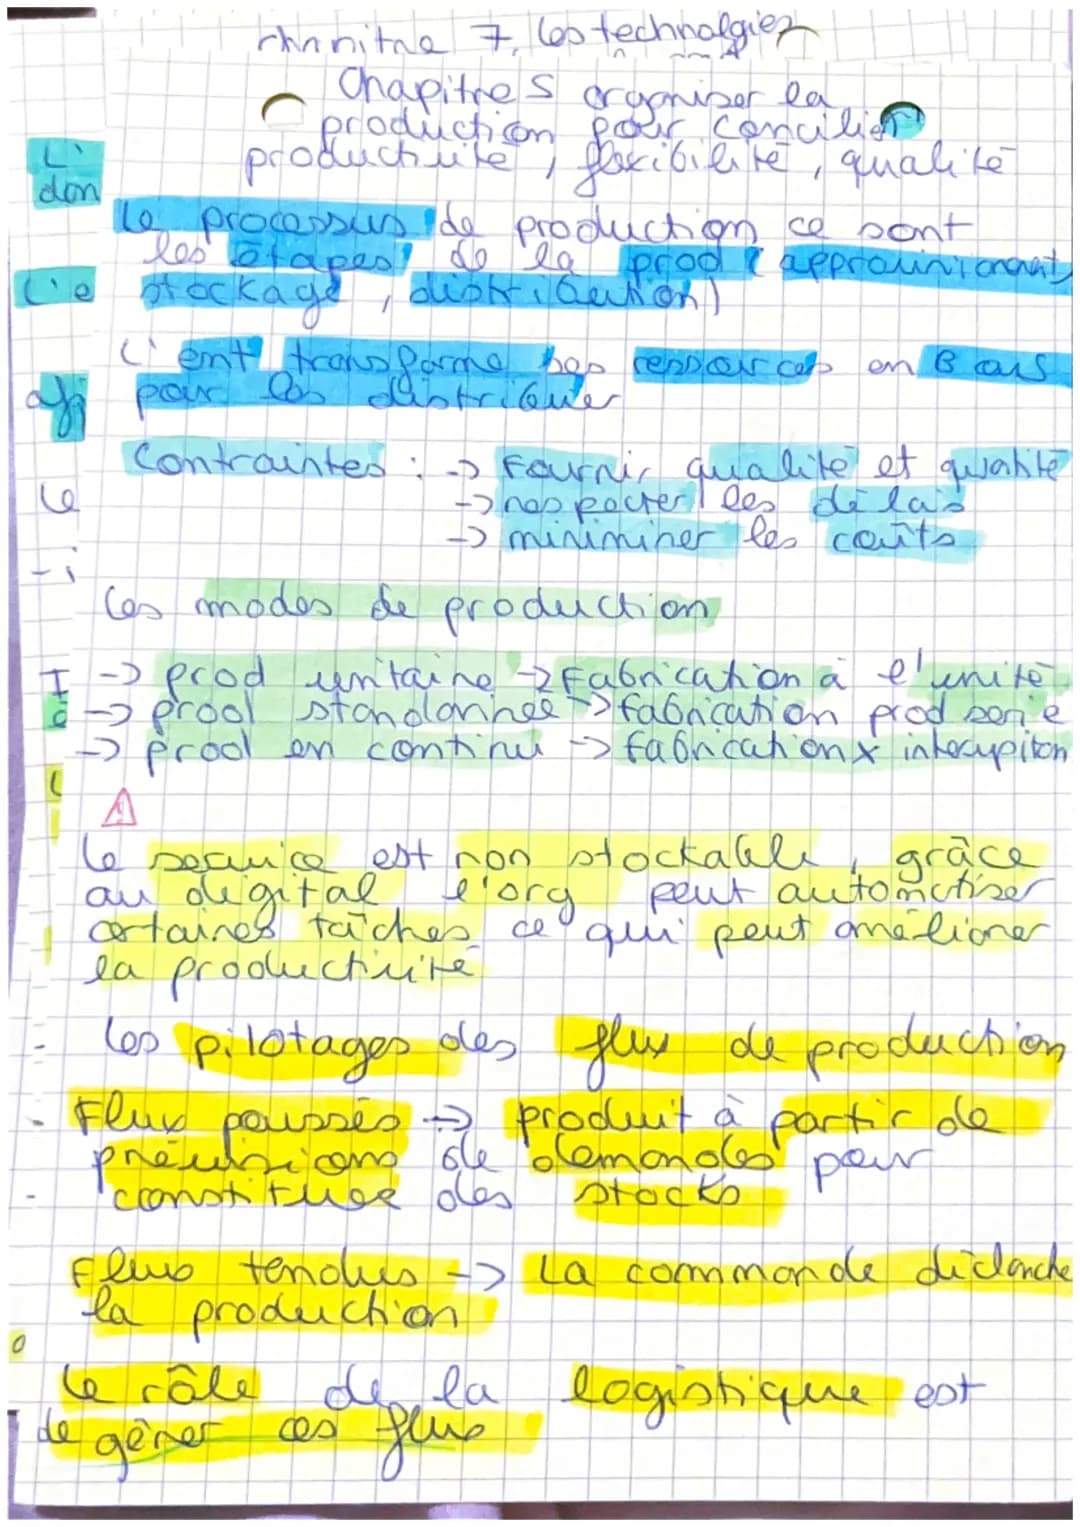 7. Les technolgies
Chapitre 5 organiser la
production pour concilier
productivité, flexibilité, qualité
L'
don
Le processus de production ce sont
les étapes de la prod (approvionnement,
L'e
stockage, distribution)
L'ent transforme ses ressources en B ou S
afi
pour les distribuer
Contraintes : -> Fournir qualité et quantité
Le
-> respecter les délais
-> miniminer les coûts
Les modes de production
-> prod unitaire -> Fabrication à l'unité
-> prod standardisée -> fabrication prod serie
-> prod en continu -> fabrication x interupiton
Le service est non stockable, grâce
au digital l'org peut automatiser
certaines tâches ce qui peut améliorer
la productivité
Les pilotages des flux de production
Flux poussés -> produit à partir de
prévisions de demandes pour
constituer des stocks
Flux tendus -> La commande déclenche
la production
Le rôle de la logistique est
de gérer ces flux